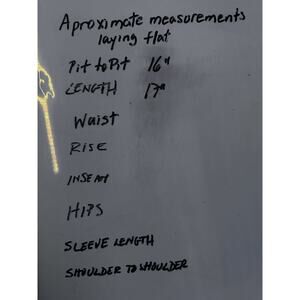 Aproximate measurements
laying flat
Pit to Pit 16"
LENGTH 17"
Waist
RISE
INSEAM
HIPS
SLEEVE LENGTH
SHOULDER TO SHOULDER